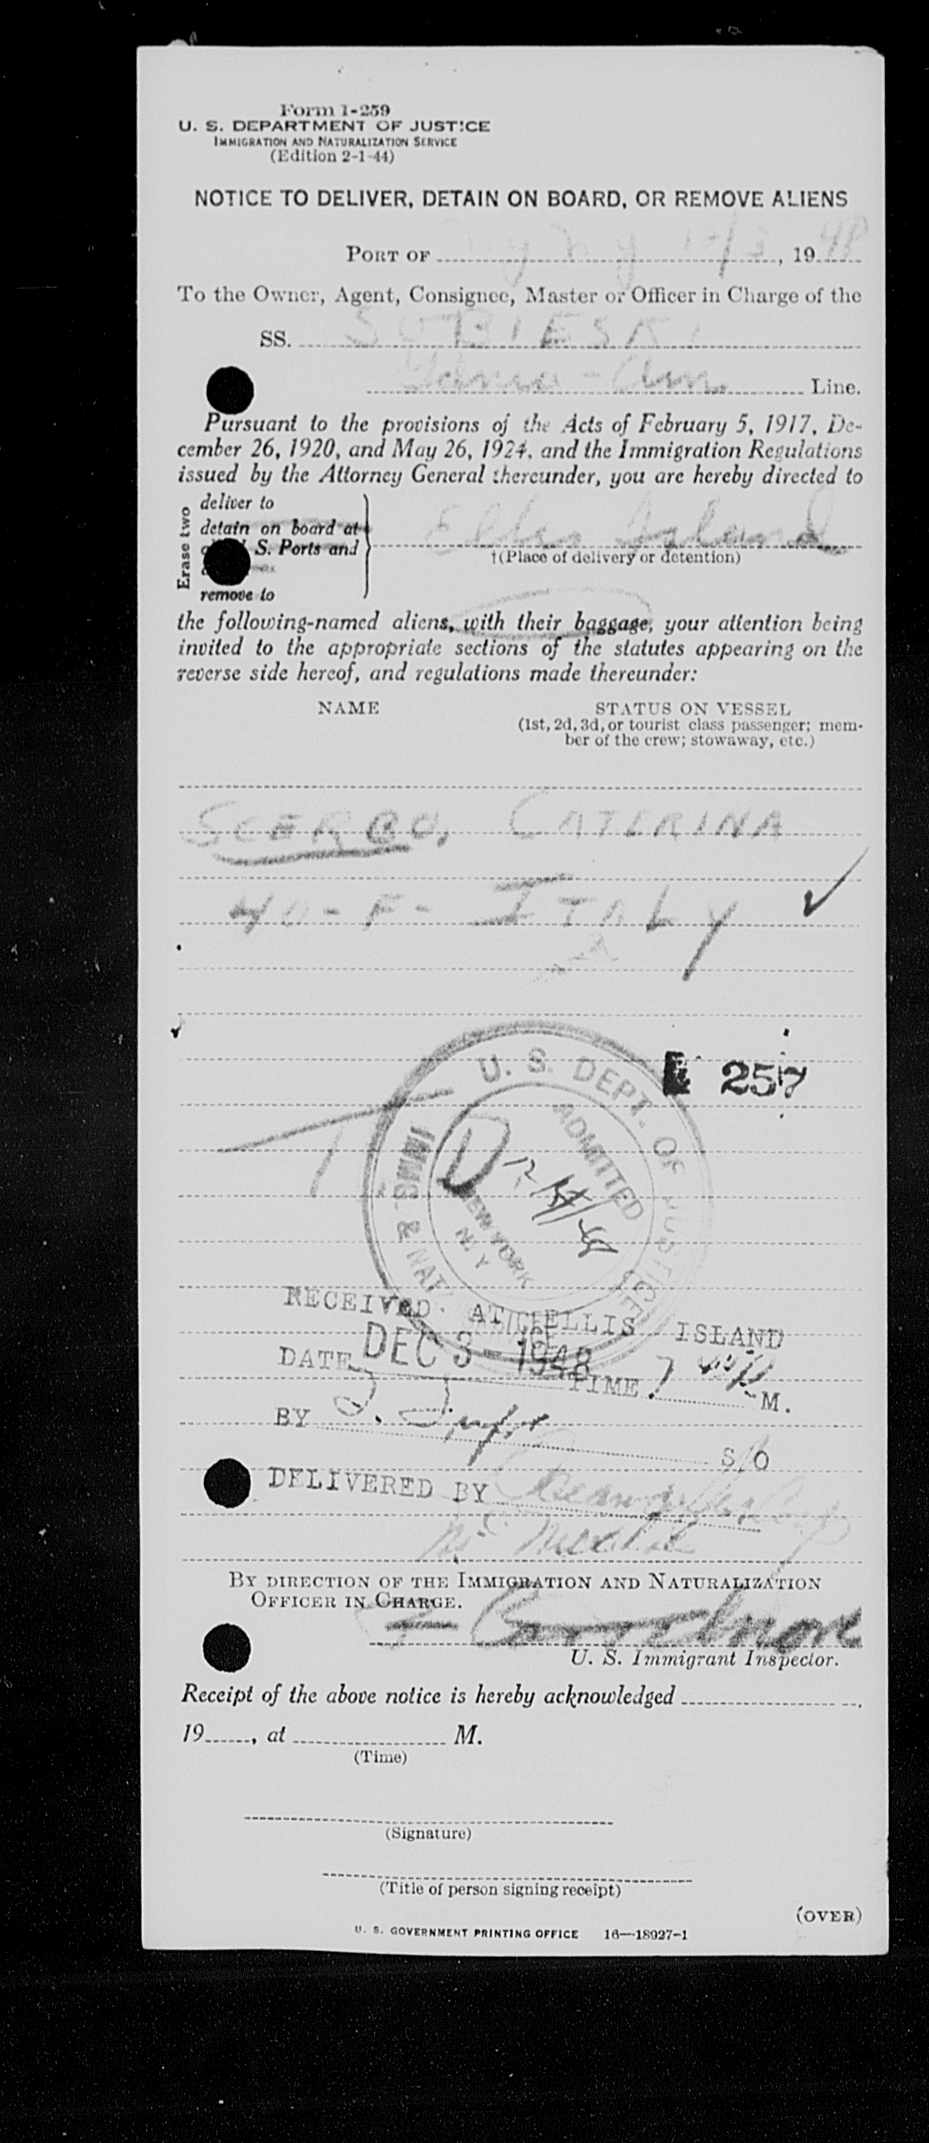 Form I-259
U. S. DEPARTMENT OF JUSTICE
IMMIGRATION AND NATURALIZATION SERVICE
(Edition 2-1-44)
NOTICE TO DELIVER, DETAIN ON BOARD, OR REMOVE ALIENS
PORT OF N.Y. N.Y. 12/3, 1948
To the Owner, Agent, Consignee, Master or Officer in Charge of the
SS. SOBIESKI
Gdnia - Am. Line.
Pursuant to the provisions of the Acts of February 5, 1917, De-
cember 26, 1920, and May 26, 1924, and the Immigration Regulations
issued by the Attorney General thereunder, you are hereby directed to
Erase two
deliver to
detain on board at
S. Ports and
remove to
Ellis Island
†(Place of delivery or detention)
the following-named aliens, with their baggage, your attention being
invited to the appropriate sections of the statutes appearing on the
reverse side hereof, and regulations made thereunder:
NAME STATUS ON VESSEL
(1st, 2d, 3d, or tourist class passenger; mem-
ber of the crew; stowaway, etc.)
SCERBO, CATERINA
40 - F - ITALY ✓
257
U. S. DEPT. OF JUSTICE
IMMG. & NAT. SERVICE
ADMITTED
NEW YORK
N. Y.
RECEIVED AT ELLIS ISLAND
DATE DEC 3 - 1948 TIME 7 M.
BY S/O
DELIVERED BY
BY DIRECTION OF THE IMMIGRATION AND NATURALIZATION
OFFICER IN CHARGE.
U. S. Immigrant Inspector.
Receipt of the above notice is hereby acknowledged
19......, at M.
(Time)
(Signature)
(Title of person signing receipt)
(OVER)
U. S. GOVERNMENT PRINTING OFFICE 16—18927-1